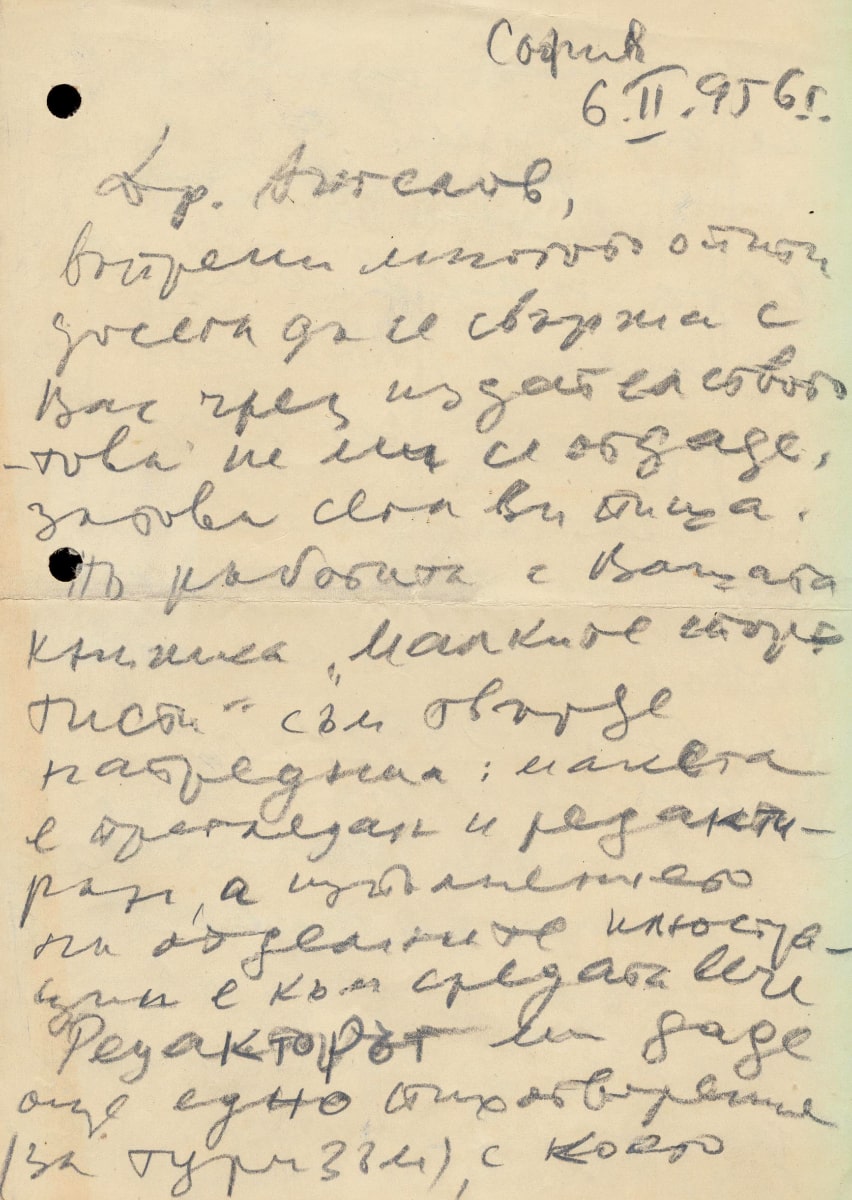 София
6.II.956г.
Др. Ангелов,
въпреки многото опити
досега да се свържа с
Вас чрез издателството
-това не ми се отдаде,
затова сега Ви пиша.
По работата с Вашата
книжка „Малките спор-
тисти" съм твърде
напреднал: макета
е прегледан и редакти-
ран, а изпълнението
на отделните илюстра-
ции е към средата вече
Редакторът ми даде
още едно стихотворение
(за туризъм), с което